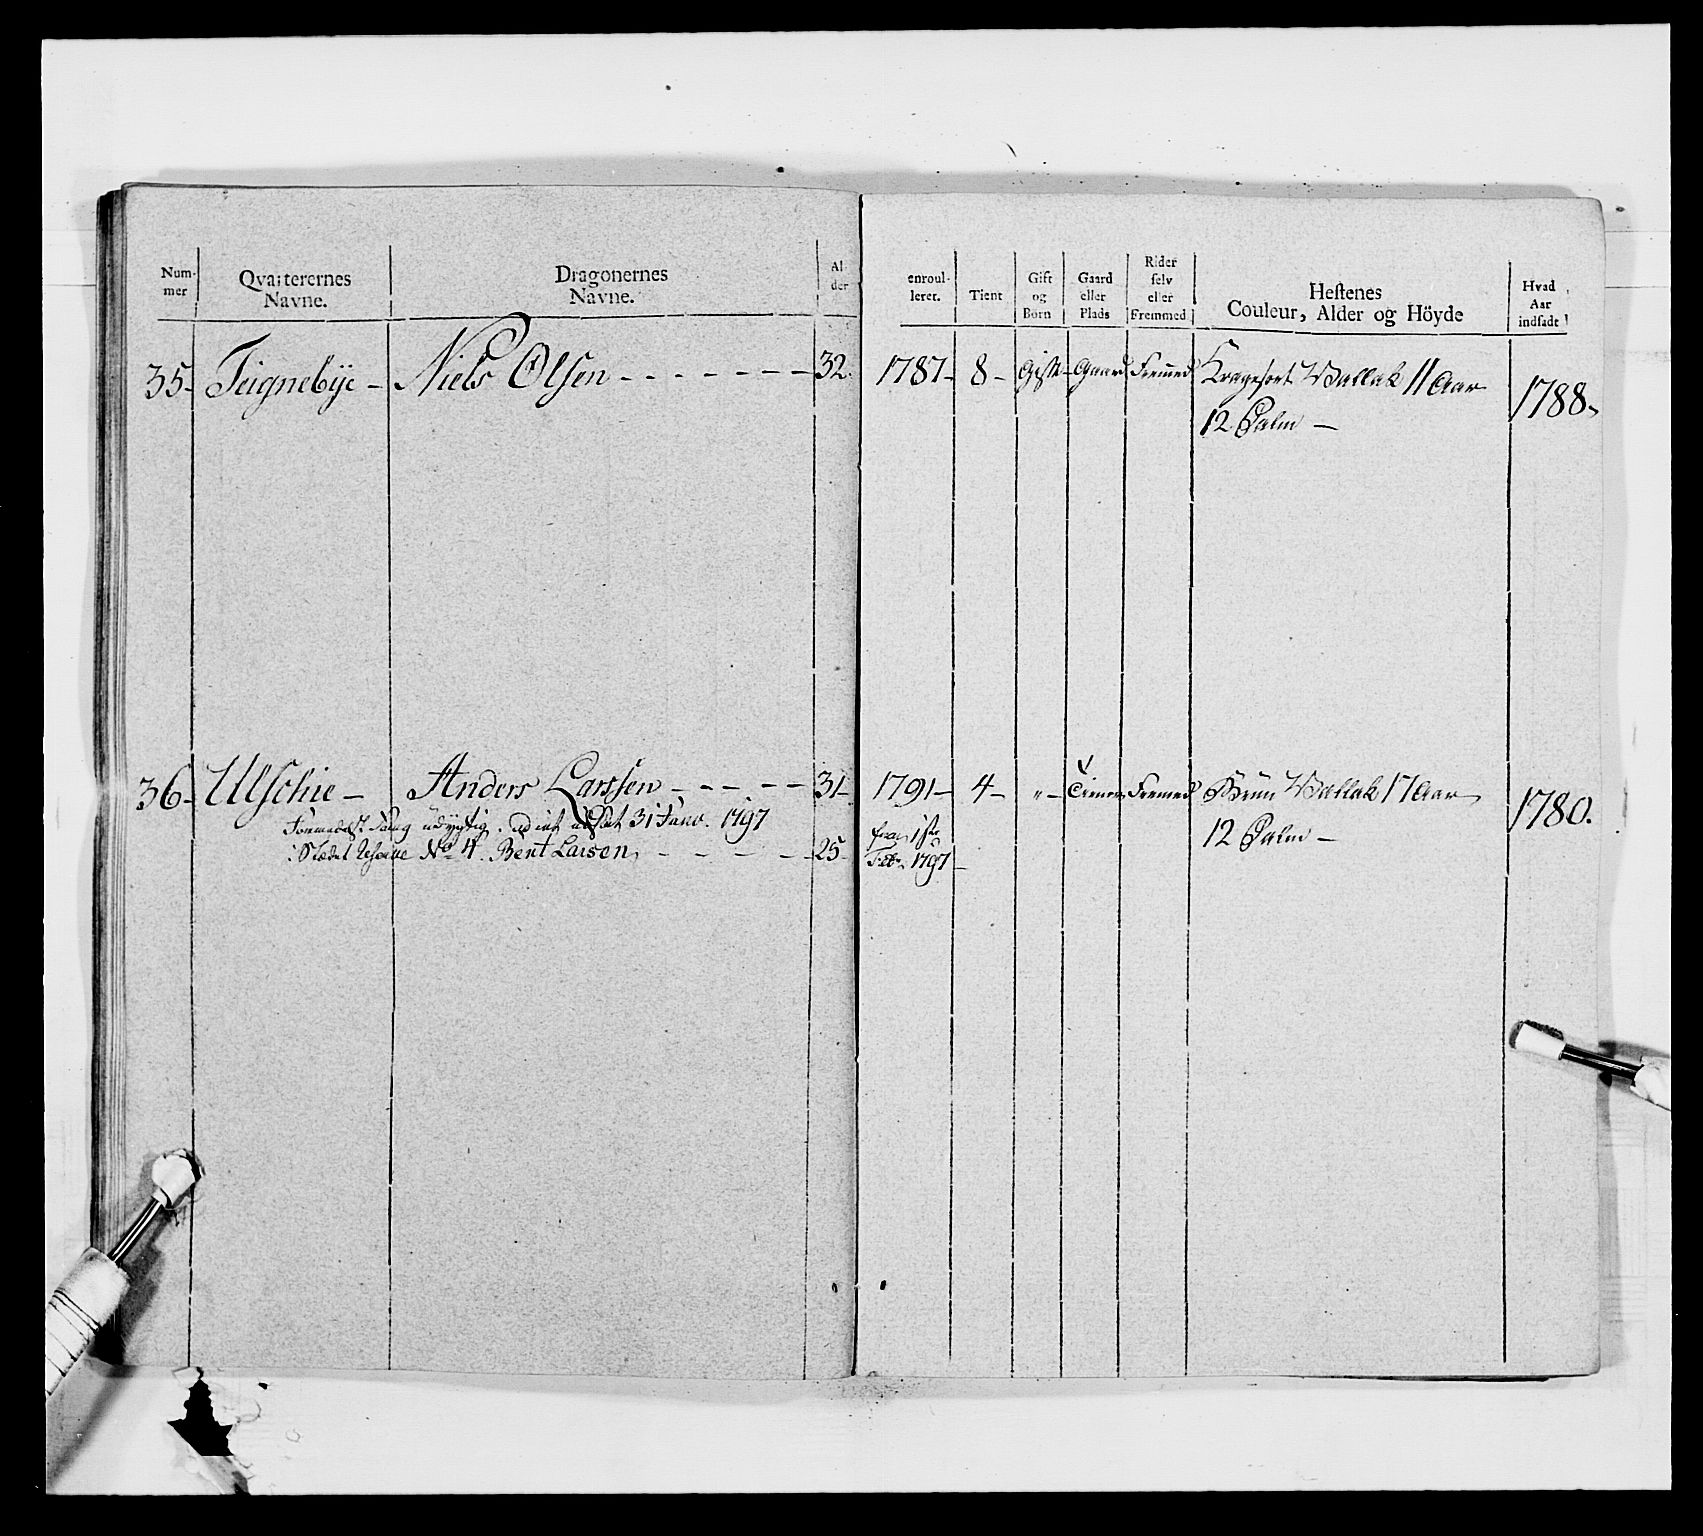 Num-
mer
Qvarterernes
Navne.
Dragonernes
Navne.
Al
der
enroul-
leret.
Tient
Gift
og
Børn
Gaard
eller
Plads
Rider
selv
eller
Fremmed
Hestenes
Couleur, Alder og Höyde
Hvad
Aar
indsadt
35- Teignebÿe - Niels Olsen - - - - - - - 32. 1787- 8- Gift- Gaard Fremed Kragesort Wallak 11 Aar 1788-
12 Palm -
36- Ulschie - Anders Larssen - - - - - 31- 1791- 4- "- Tiener Fremed Brun Wallak 17 Aar 1780.
12 Palm -
udygtig 31 Janv. 1797
fra 1ste
i Stædet No 4. Bent Larsen, - - - - - 25-
Febr. 1797-